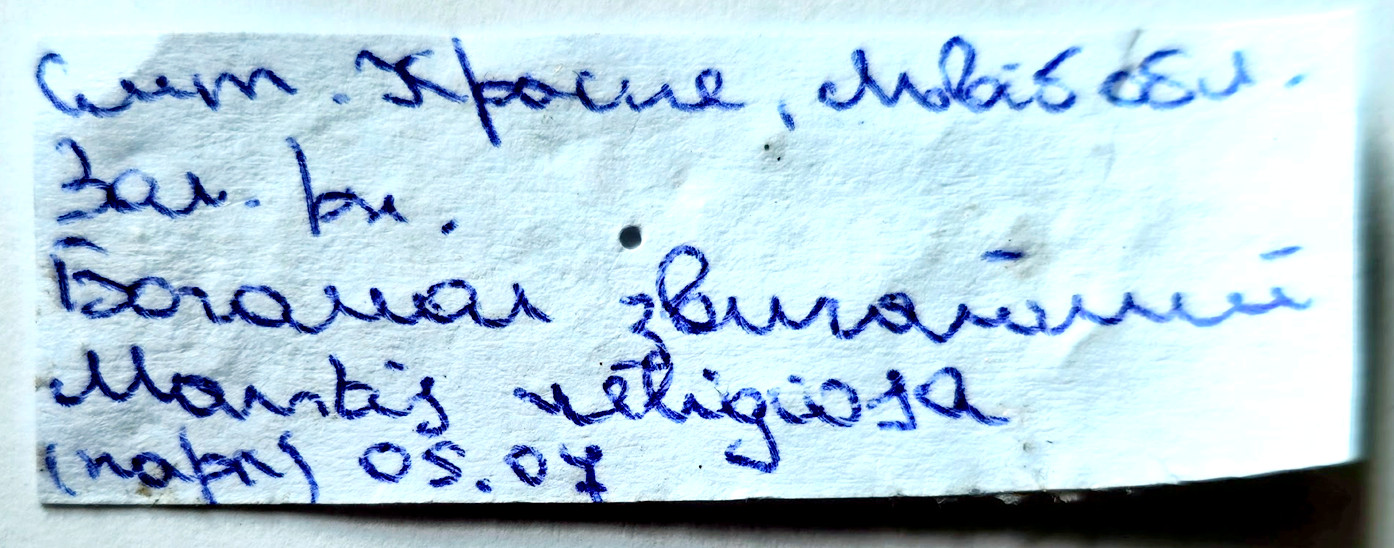 смт. Красне, Львів обл.
Зал. рк.
Богомол звичайний
Mantis religiosa
05.07